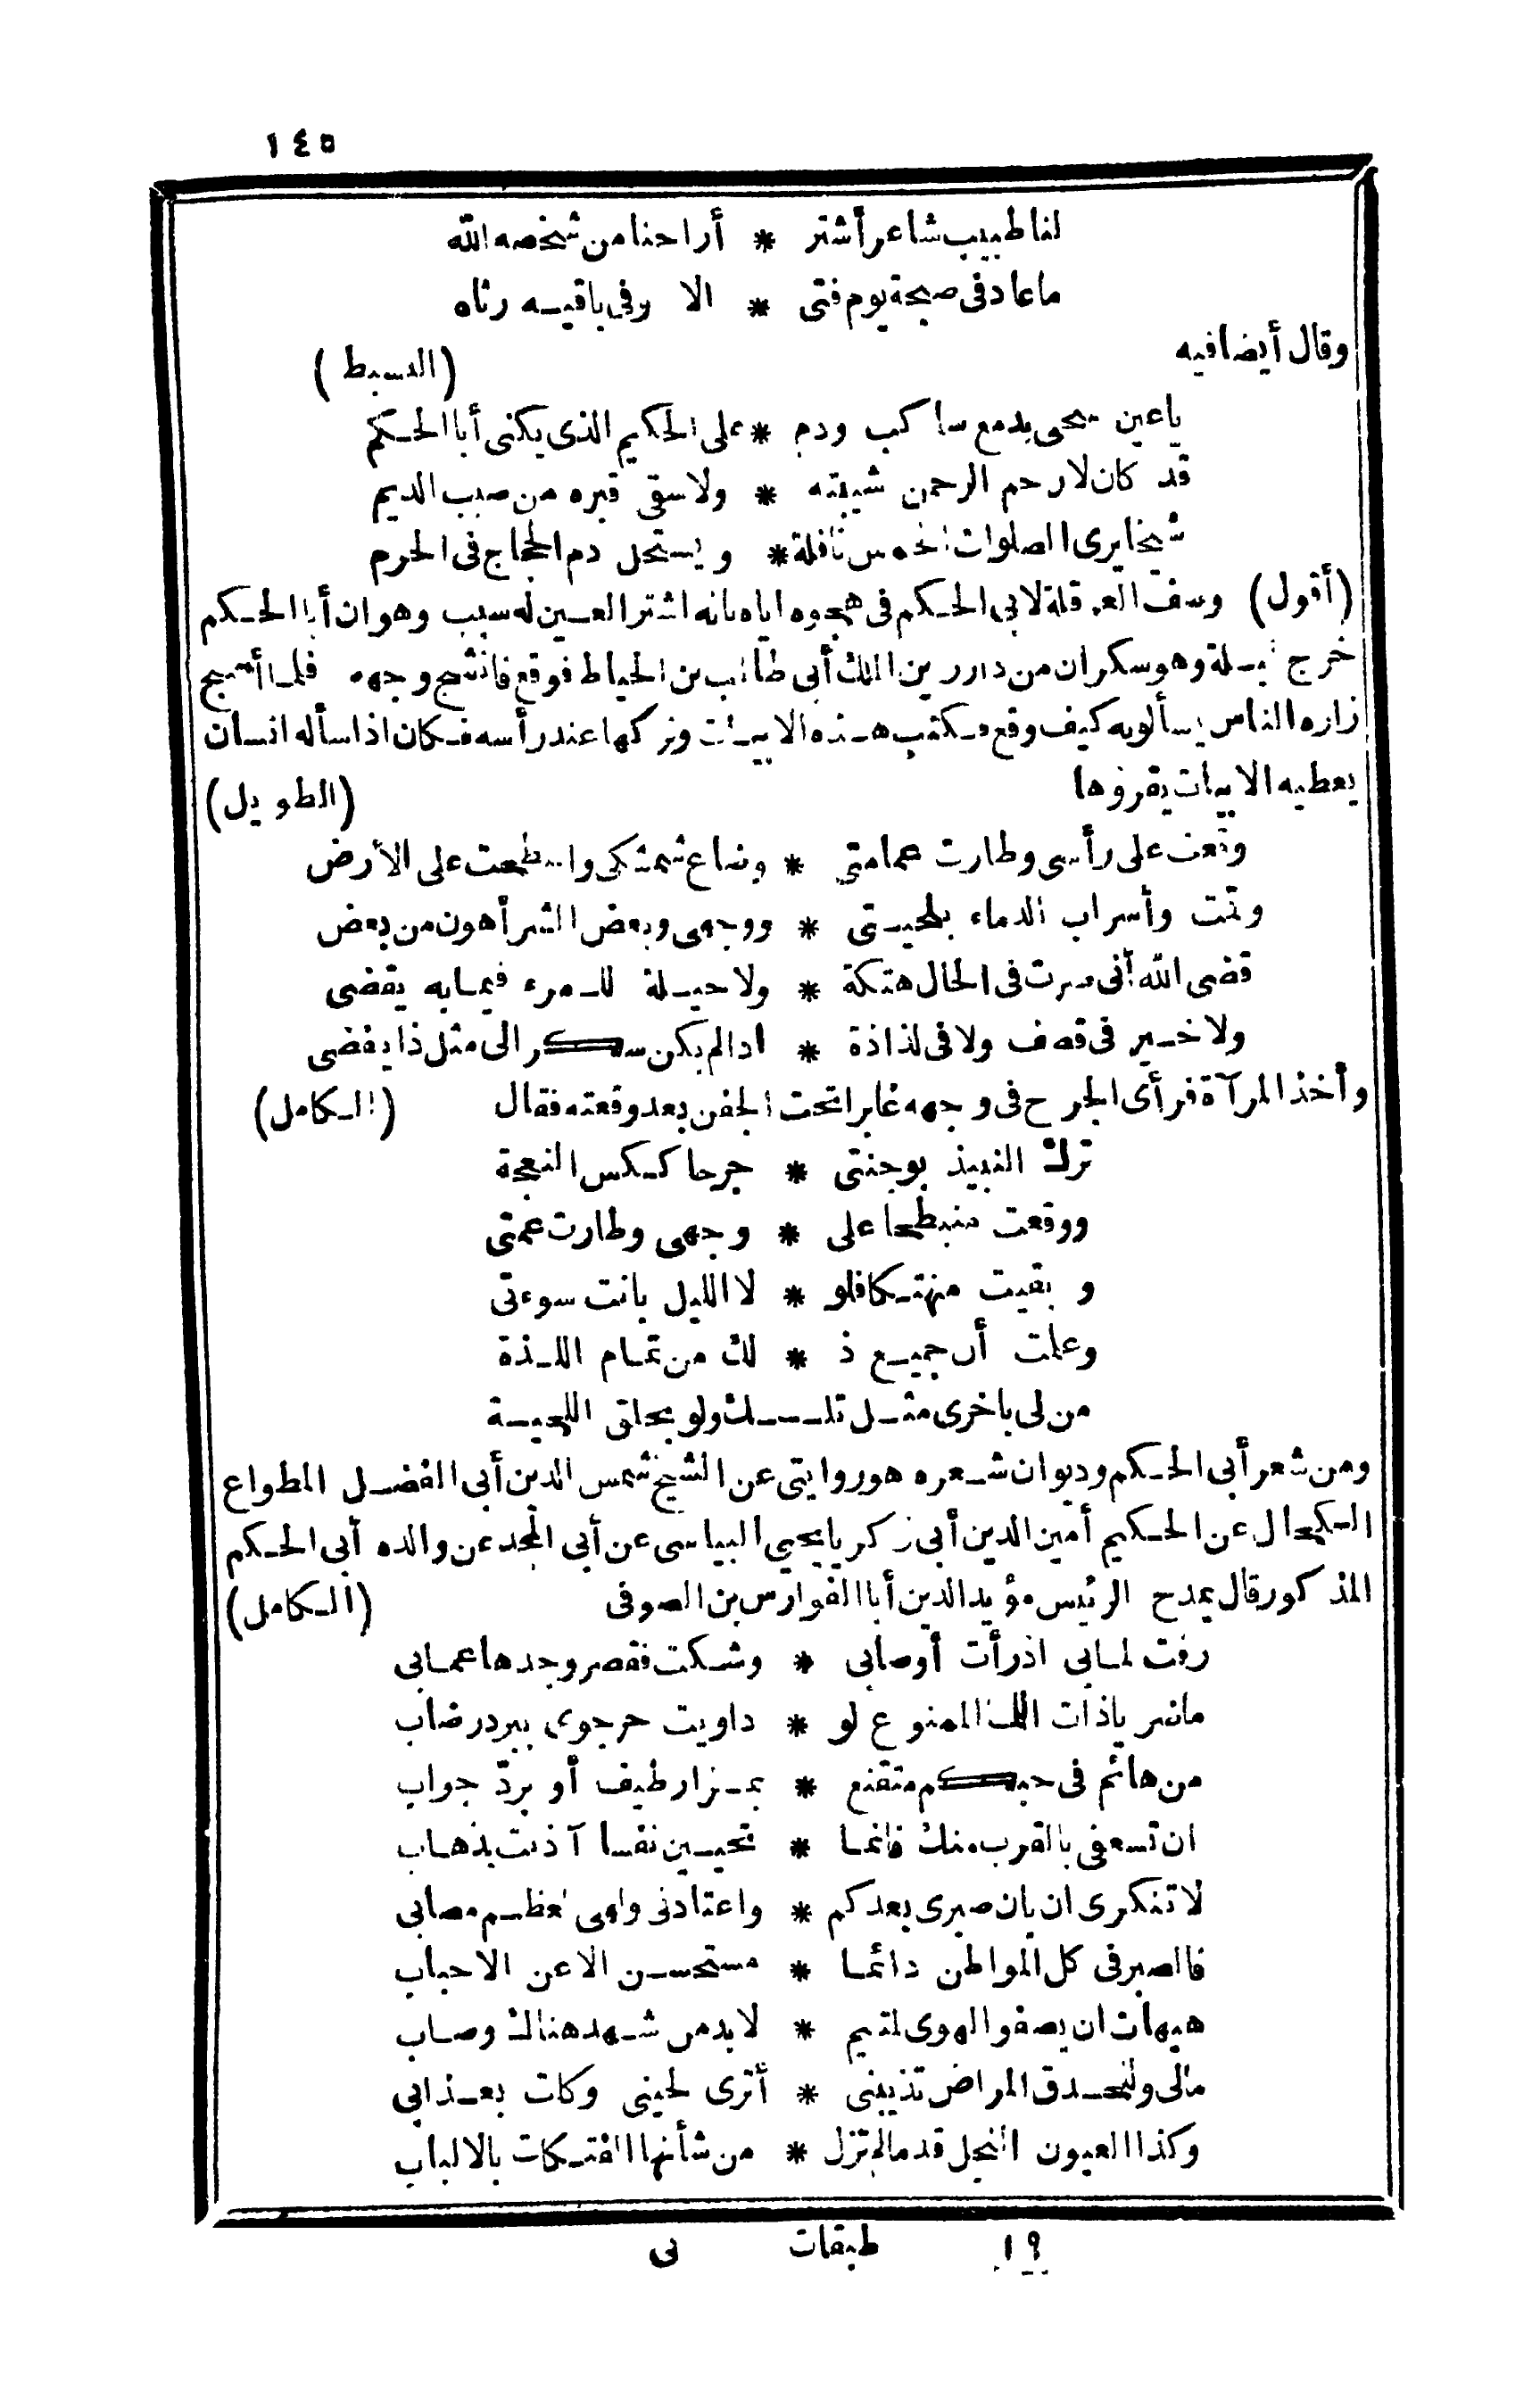 ١٤٥
لنا طبيب شاعر أشتر * أراحنا من شخصه الله
ما عاد فى صبحة يوم فتى * الا وفى باقيه رثاه
وقال أيضا فيه (البسيط)
ياعين سحى بدمع ساكب ودم * على الحكيم الذى يكنى أبا الحكم
قد كان لارحم الرحمن شيبته * ولا سقى قبره من صيب الديم
شيخا يرى الصلوات الخمس نافلة * ويستحل دم الحجاج فى الحرم
(أقول) وصف العرقلة لابى الحكم فى هجوه اياه بانه اشتر العين له سبب وهو ان أبا الحكم
خرج ليلة وهو سكران من دار زين الملك أبى طالب بن الخياط فوقع فانشج وجهه فلما أصبح
زاره الناس يسألونه كيف وقع فكتب هذه الابيات وتركها عند رأسه فكان اذا سأله انسان
يعطيه الابيات يقرؤها (الطويل)
وقعت على رأسى وطارت عمامتى * وضاع شمشكى وانبطحت على الأرض
وقمت وأسراب الدماء بلحيتى * ووجهى وبعض الشر أهون من بعض
قضى الله أنى صرت فى الحال هتكة * ولا حيلة للمرء فيما به يقضى
ولا خير فى قصف ولا فى لذاذة * اذا لم يكن سكر الى مثل ذا يفضى
وأخذ المرآة فرأى الجرح فى وجهه غابرا تحت الجفن بعد وقعته فقال (الكامل)
ترك النبيذ بوجنتى * جرحا ككس النعجة
ووقعت منبطحا على * وجهى وطارت عمتى
وبقيت منهتكا فلو * لا الليل بانت سوءتى
وعلمت أن جميع ذ * لك من تمام اللذة
من لى باخرى مثل تلـــك ولو بحلق اللحية
ومن شعر أبى الحكم وديوان شعره هو روايتى عن الشيخ شمس الدين أبى الفضل المطواع
الكحال عن الحكيم أمين الدين أبى زكريا يحيى البياسى عن أبى المجد عن والده أبى الحكم
المذكور قال يمدح الرئيس مؤيد الدين أبا الفوارس بن الصوفى (الكامل)
رقت لما بى اذ رأت أوصابى * وشكت فقصر وجدها عما بى
ما ضر ياذات اللمى الممنوع لو * داويت حر جوى ببرد رضاب
من هائم فى حبكم متقنع * بمزار طيف أو برد جواب
ان تسعفى بالقرب منك فانما * تحيين نفسا آذنت بذهاب
لا تنكرى ان بان صبرى بعدكم * واعتادنى ولهى لعظم مصابى
فالصبر فى كل المواطن دائما * مستحسن الا عن الاحباب
هيهات ان يصفو الهوى لمتيم * لابد من شهد هناك وصاب
مالى وللحدق المراض تذيبنى * أترى لحينى وكلت بعذابى
وكذا العيون النجل قدما لم تزل * من شأنها الفتكات بالالباب
١٩ طبقات نى